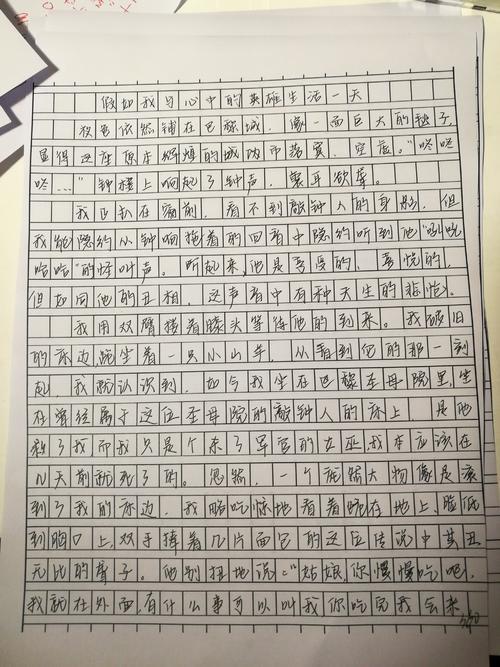 假如我与心中的英雄生活一天
夜色依然铺在巴黎城,像一面巨大的毯子,
显得这座原本辉煌的城内市落寞、空虚。“咚咚
咚…”钟楼上响起了钟声,震耳欲聋。
我正趴在窗前,看不到敲钟人的身影,但
我能隐约从钟响拖着的回音中隐约听到他“吼吼
哈哈”的怪叫声。听起来,他是享受的、喜悦的,
但如同他的丑相,这声音中有种天生的悲怆。
我用双臂搂着膝头等待他的到来。我破旧
的床边,跪坐着一只小山羊,从看到它的那一刻
起,我就认识到,如今我坐在巴黎圣母院里,坐
在曾经属于这位圣母院的敲钟人的床上 是他
救了我而我只是个杀了军官的女巫,我本应该在
几天前就死了的。忽然,一个庞然大物像是滚
到了我的床边,我略吃惊地看着跪在地上、脸低
到胸口上,双手捧着几片面包的这位传说中其丑
无比的聋子。他别扭地说:“姑娘,你慢慢吃吧,
我就在外面,有什么事可以叫我你吃完我会来